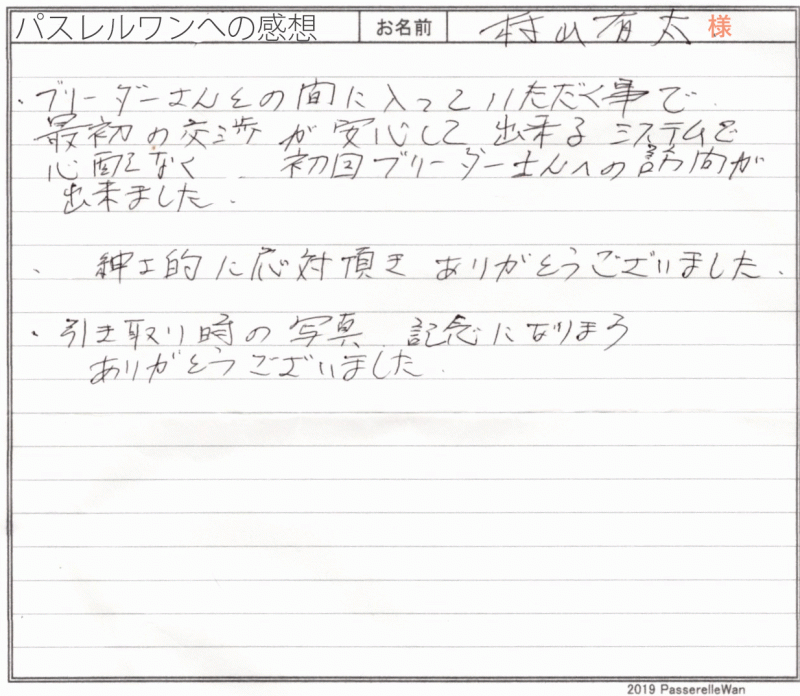 パスレルワンへの感想 お名前 村山有太 様
・ブリーダーさんとの間に入っていただく事で
最初の交渉が安心して出来るシステムで
心配なく、初回ブリーダーさんへの訪問が
出来ました。
・紳士的に応対頂き ありがとうございました。
・引き取り時の写真、記念になりまろ
ありがとうございました。
2019 PasserelleWan